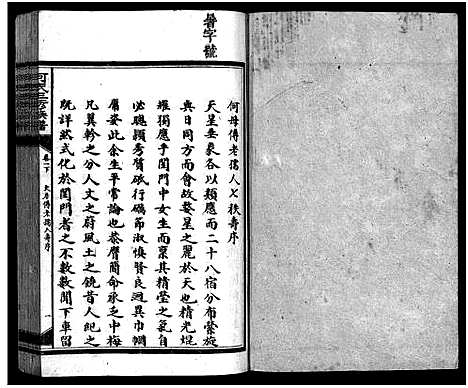 晉字號
何母傅老孺人七秩壽序
天星垂象各以類應而二十八宿分布縈旋
與日同方而會故婺星之麗於天也精光焜
耀獨應乎閨閫中女生而稟其精瑩之氣自
必聰穎秀質砥行礪節淑慎賢良迥異巾幗
庸姿此余生平常論也恭膺簡命承乏中梅
凡翼軫之分人文之蔚風土之饒昔人紀之
既詳然式化於閨門者之不數數聞下車留
何氏宗譜
卷一下
何母傅老孺人壽序
一